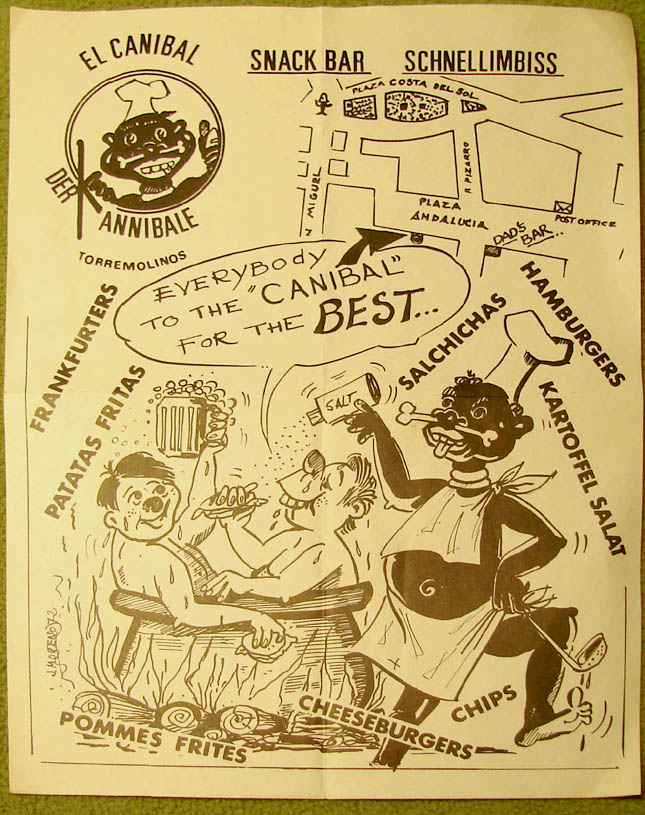 EL CANIBAL
DER KANNIBALE
TORREMOLINOS
SNACK BAR SCHNELLIMBISS
PLAZA COSTA DEL SOL
N MIGUEL
R. PIZARRO
PLAZA
ANDALUCIA
POST OFFICE
DAD'S
BAR..
EVERYBODY
TO THE "CANIBAL"
FOR THE BEST...
FRANKFURTERS
PATATAS FRITAS
SALT
SALCHICHAS
HAMBURGERS
KARTOFFEL SALAT
J. MORENO 72
POMMES FRITES
CHEESEBURGERS
CHIPS